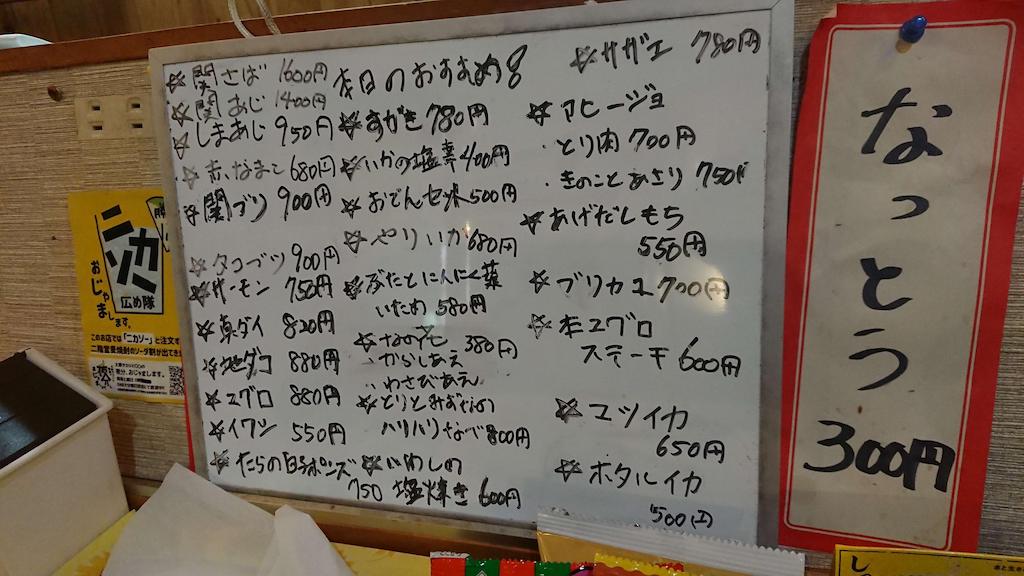 本日のおすすめ
☆関さば 1600円
☆関あじ 1400円
☆しまあじ 950円
☆赤なまこ 680円
☆関ブリ 900円
☆タコブツ 900円
☆サーモン 750円
☆真ダイ 820円
☆地ダコ 880円
☆マグロ 880円
☆イワシ 550円
☆たらの白子ポンズ
750
☆すがき 780円
☆いかの塩辛 400円
☆おでんセット 500円
☆やりいか 680円
☆ぶたとにんにく葉
いため 580円
☆なの花 380円
・からしあえ
・わさびあえ
☆とりとみずなの
ハリハリなべ 800円
☆いわしの
塩焼き 600円
☆サザエ 780円
☆アヒージョ
・とり肉 700円
・きのことあさり 750円
☆あげだしもち
550円
☆ブリカマ 700円
☆本マグロ
ステーキ 600円
☆マツイカ
650円
☆ホタルイカ
500円
なっとう
300円
ニカソー
広め隊
おじゃまします。
このお店では「ニカソー」と注文す
二階堂麦焼酎のソーダ割が出てき